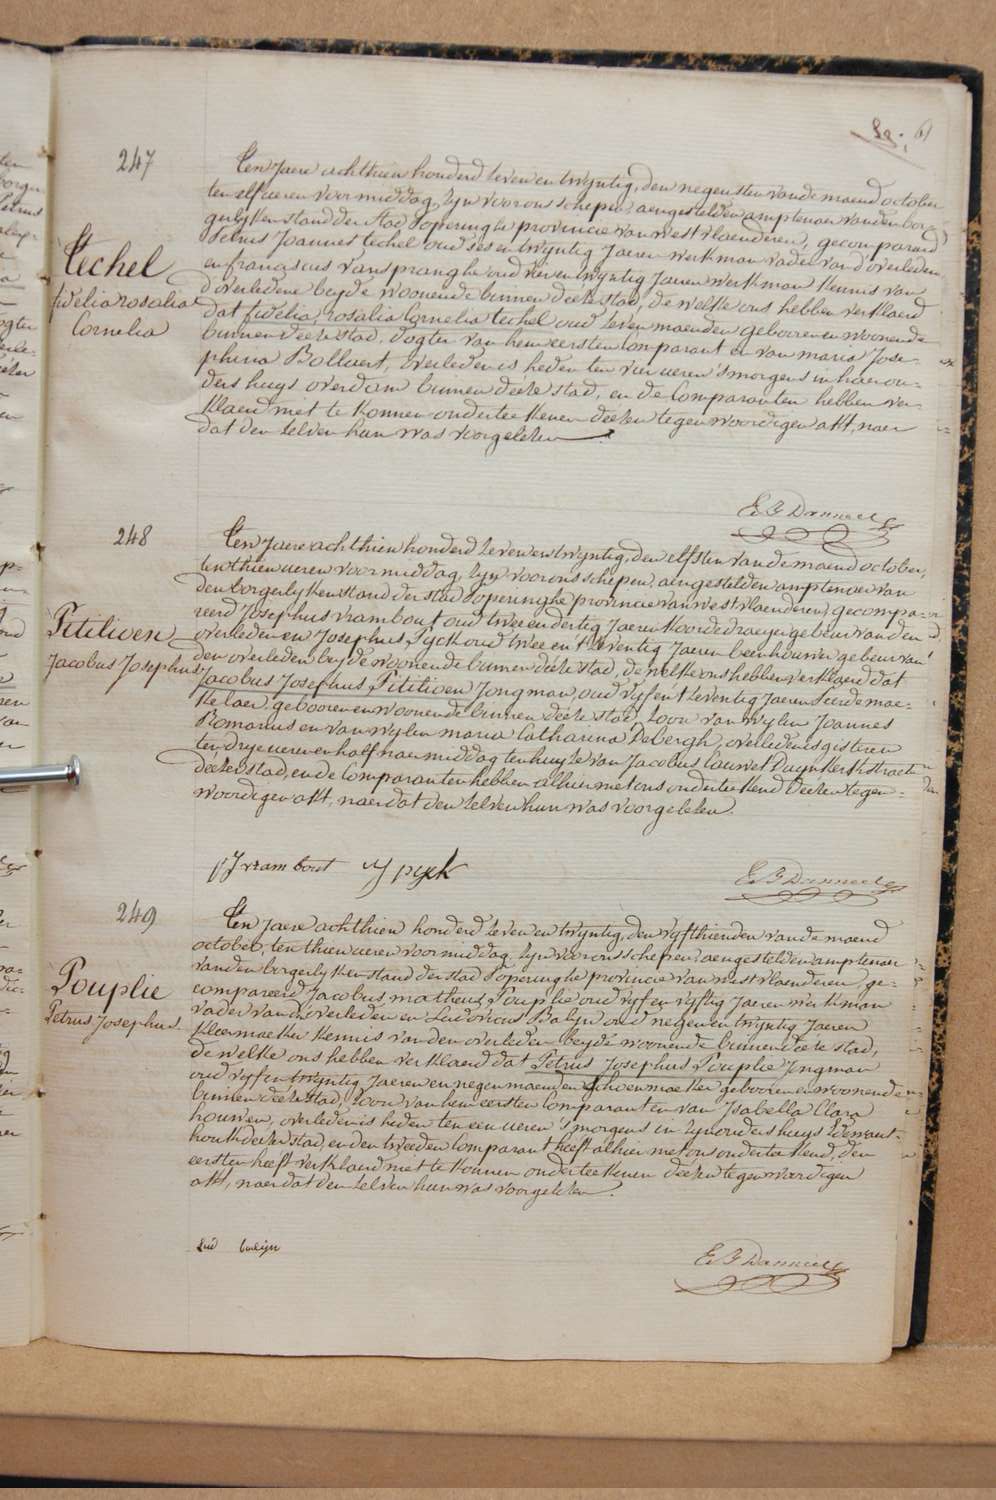 247
Techel
fidelia rosalia
Cornelia
Ten Jaere achthien honderd zeven en twyntig, den negensten van de maend october
ten elf ueren voormiddag, zyn voor ons schepen, aengestelden amptenaer van den bor-
gerlyken stand der stad Poperinghe provincie van westvlaenderen, gecompareerd
Petrus Joannes techel oud ses en twyntig Jaeren werkman vader van d'overleden
en franciscus vansprranghe oud vier en twyntig Jaeren werkman kennis van
d'overledene beyde woonende binnen deeze stad, de welke ons hebben verklaerd
dat fidelia, rosalia Cornelia techel oud zeven maenden gebooren en woonende
binnen deeze stad, dogter van hem eersten Comparant en van maria Jose-
phina Bollaert, overleden is heden ten vier ueren 's morgens in haer ou-
ders huys overdam binnen deeze stad, en de Comparanten hebben ver-
klaerd niet te konnen onderteekenen deezen tegenwoordigen akt, naer
dat den zelven hun was voorgelezen
248
Titilioen
Jacobus Josephus
Ten Jaere achthien honderd zeven en twyntig, den elfsten van de maend october,
ten thien ueren voormiddag, zyn voor ons schepen, aengestelden amptenaer van
den borgerlyken stand der stad Poperinghe provincie van westvlaenderen, gecompa-
reerd Josephus vrambout oud twee en dertig Jaeren koordedraeyer gebeur van den
overleden en Josephus Pyck oud twee en t'zeventig Jaeren beenhouwer gebeur van
den overleden beyde woonende binnen deeze stad, de welke ons hebben verklaerd dat
Jacobus Josephus Titilioen Jongman, oud vyf en t'zeventig Jaeren
gebooren en woonende binnen deeze stad, zoon van wylen Joannes
Romanus en van wylen maria Catharina Debergh, overleden is gisteren
ten drye ueren en half naermiddag ten huyze van Jacobus Cauwet Duynkerkstraete
deezer stad, en de Comparanten hebben alhier met ons onderteekend deezen tegen-
woordigen akt, naer dat den zelven hun was voorgelezen.
J vrambout J pyck
249
Pouplie
Petrus Josephus
Ten Jaere achthien honderd zeven en twyntig, den vyfthienden van de maend
october, ten thien ueren voormiddag, zyn voor ons schepen, aengestelden amptenaer
van den borgerlyken stand der stad Poperinghe provincie van westvlaenderen, ge-
compareerd Jacobus matheus Pouplie oud vyf en vyftig Jaeren werkman
vader van den overleden en Ludovicus Balyn oud negen en twyntig Jaeren
kleermaeker kennis van den overleden beyde woonende binnen deeze stad,
de welke ons hebben verklaerd dat Petrus Josephus Pouplie Jongman
oud vyf en twyntig Jaeren en negen maenden schoenmaeker gebooren en woonende
binnen deeze stad, zoon van hem eersten Comparant en van Isabella Clara
houwen, overleden is heden ten een ueren 's morgens in zyn ouders huys
deezer stad, en den tweeden Comparant heeft alhier met ons onderteekend, den
eersten heeft verklaerd niet te konnen onderteekenen deezen tegenwoordigen
akt, naer dat den zelven hun was voorgelezen.
Lud balijn